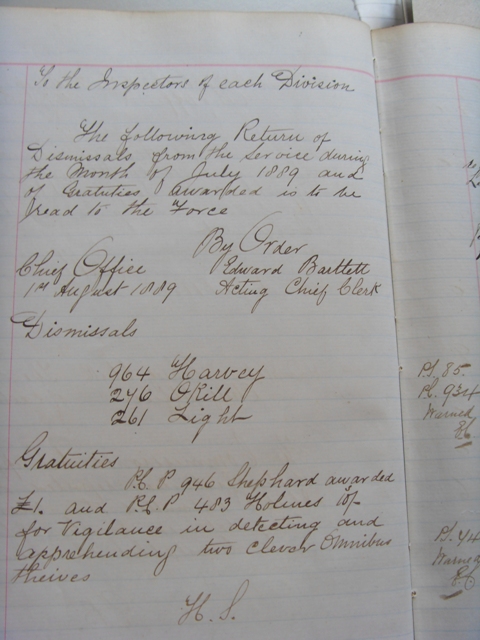 To the Inspectors of each Division
The following Return of
Dismissals from the Service during
the Month of July 1889 and
of Gratuties awarded is to be
read to the Force
By Order
Chief Office Edward Bartlett
1st August 1889 Acting Chief Clerk
Dismissals
964 Harvey
276 Okill
261 Light
Gratuities
P.C. P 946 Shephard awarded
£1. and P.C. P 483 Holmes 10/-
for Vigilance in detecting and
apprehending two clever Omnibus
theives
H. S.
PS. 85
PC. 934
Warned
PS. 44
Warned